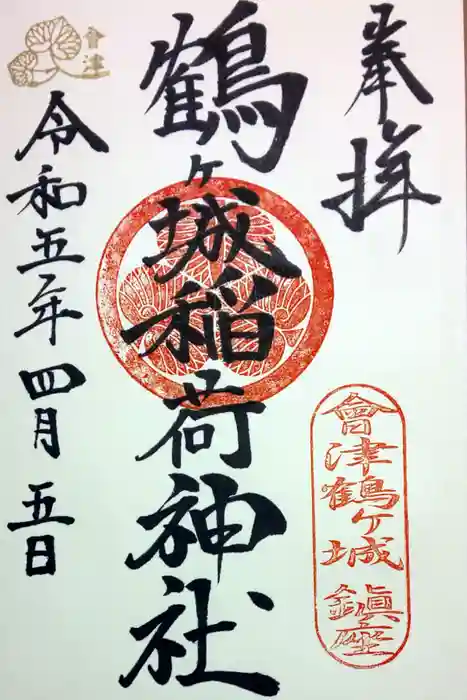 奉拝
會津鶴ヶ城 鎮座
鶴ヶ城稲荷神社
會津
令和五年 四月 五日